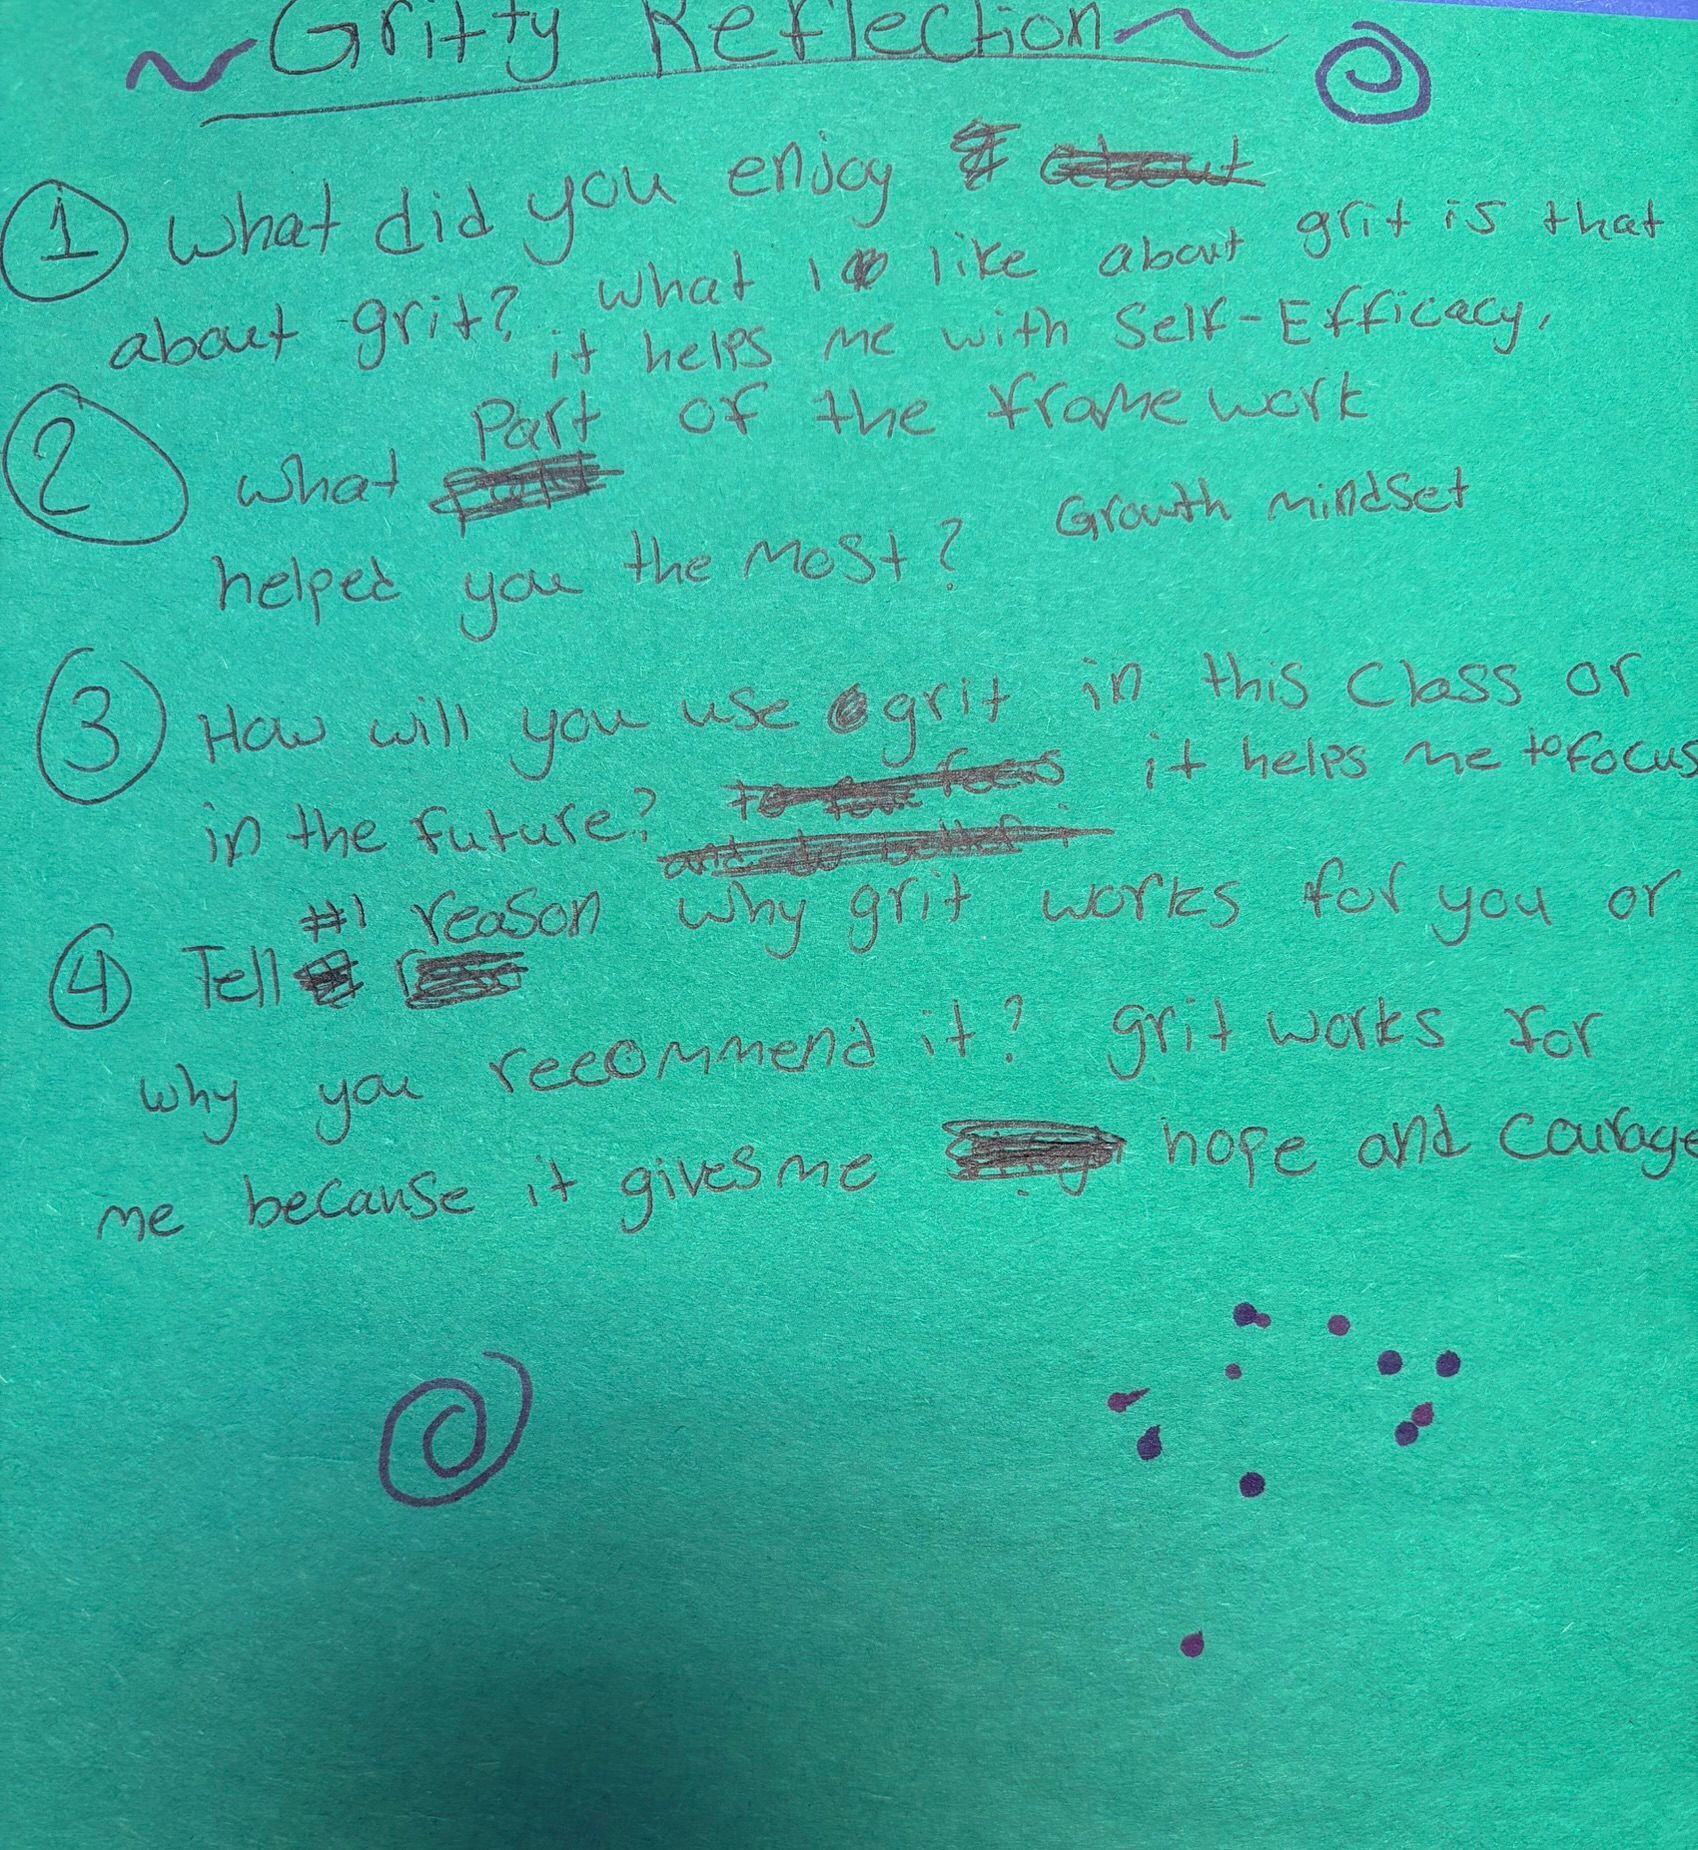 ~Gritty Reflection~
1 What did you enjoy about
about grit? What I like about grit is that
it helps me with Self-Efficacy.
2 What Part of the framework
helped you the most? Growth mindset
3 How will you use grit in this Class or
in the future? it helps me to focus
4 Tell #1 reason why grit works for you or
why you recommend it? grit works for
me because it gives me hope and courage